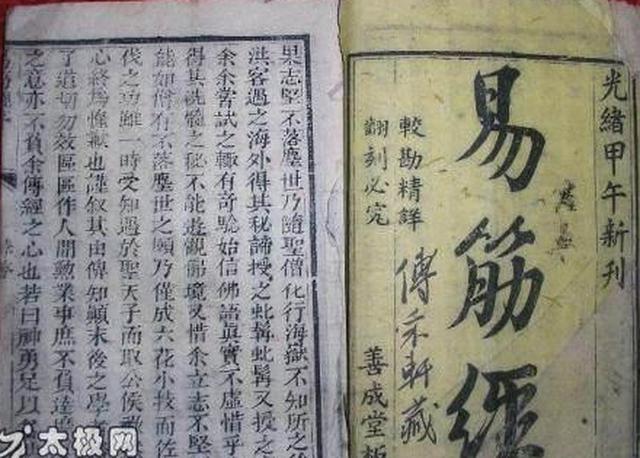 光緒甲午新刊
易筋經
較勘精詳
翻刻必究
藏
善成堂
果志堅不落塵世乃隨聖僧化行海嶽不知所之
洪客遇之海外得其秘諦授之虬髯虬髯又授之
余余嘗試之輒有奇騐始信佛語眞實不虛惜乎
得其洗髓之秘不能遊觀佛境又惜余立志不堅
能如僧有不落塵世之願乃僅成六花小技而佐
伐之功雖一時受知遇於聖天子而取公侯
心終爲慊歉也謹叙其由俾知顛末後之學
了道切勿效區區作人間勲業事庶不負達
之意亦不負余傳經之心也若曰神勇足以
太极网